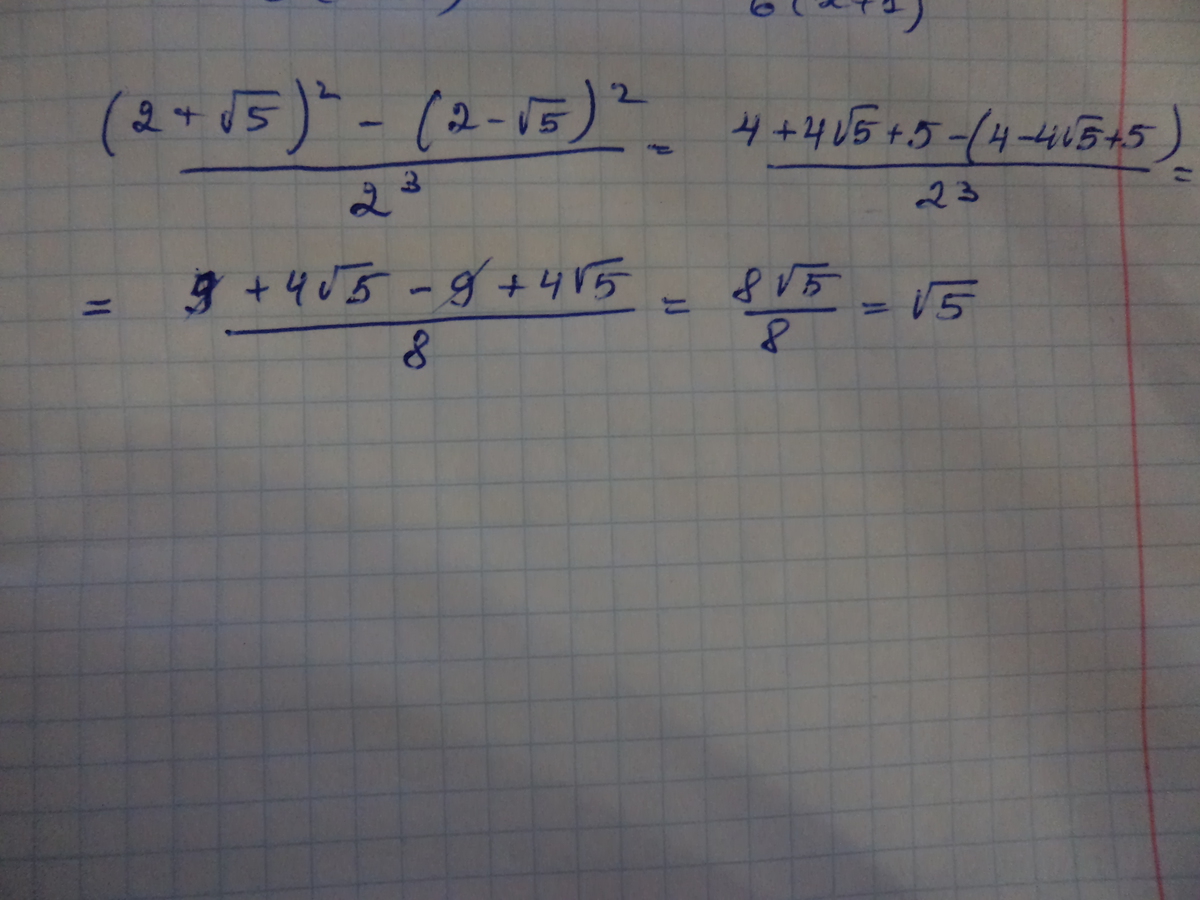 6(2+1)
(2+√5)² - (2-√5)² / 2³ = 4+4√5+5-(4-4√5+5) / 2³ =
= 9+4√5-9+4√5 / 8 = 8√5 / 8 = √5